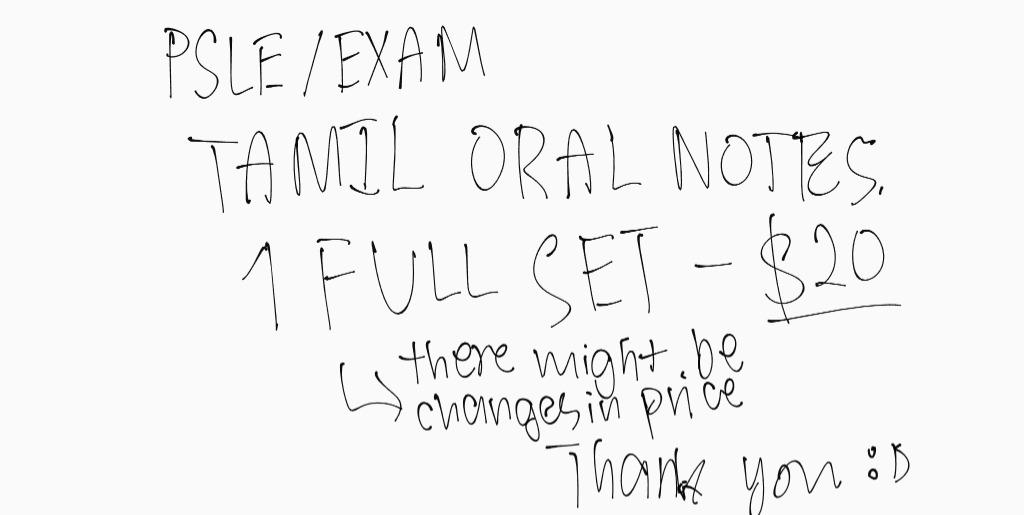 PSLE/EXAM
TAMIL ORAL NOTES.
1 FULL SET - $20
↳ there might be
changes in price
Thank you :D